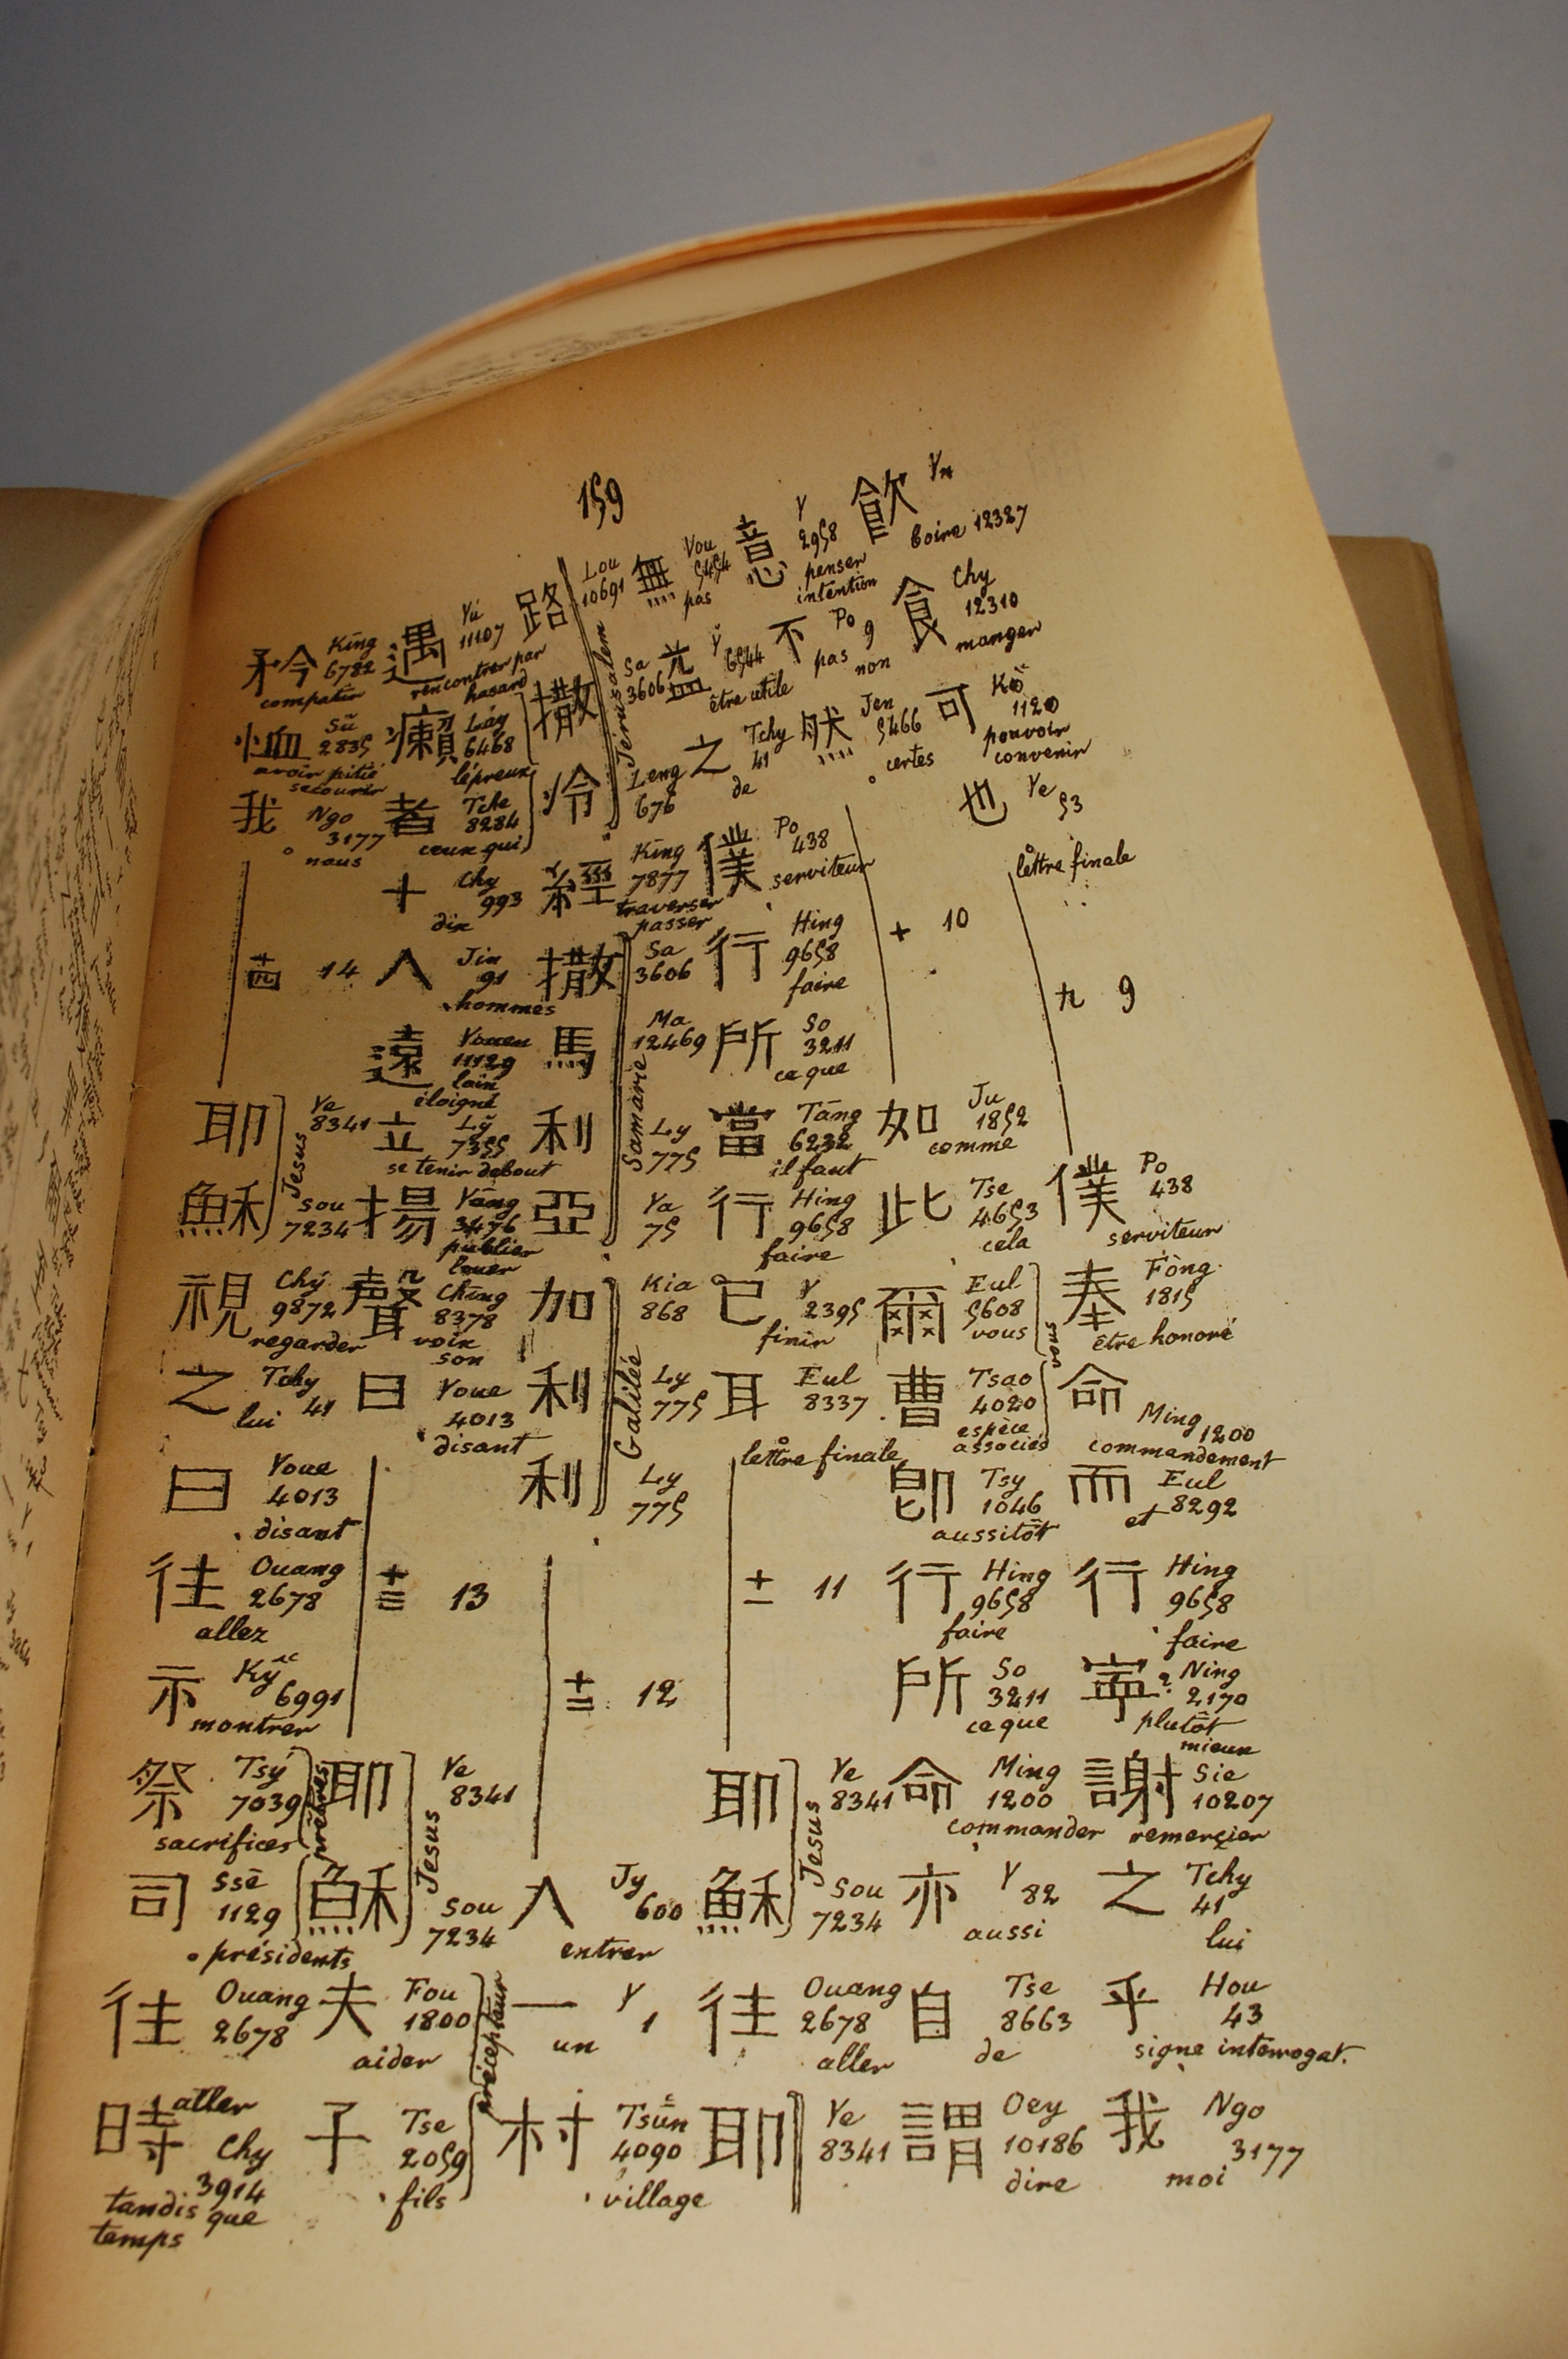 159
飲 Yn boire 12327
食 Chy 12310 manger
可 Kŏ 1120 pouvoir convenir
也 Ye 53 lettre finale
九 9
僕 Po 438 serviteur
奉 Fòng 1815 être honoré
命 Ming 1200 commandement
而 Eul 8292 et
行 Hing 9658 faire
寧 Ning 2170 plutôt mieux
謝 Sie 10207 remerçier
之 Tchy 41 lui
乎 Hou 43 signe interrogat.
我 Ngo 3177 moi
意 Y 2958 penser intention
不 Po 9 pas non
然 Jen 5466 certes
十 10
如 Ju 1852 comme
此 Tse 4653 cela
爾 Eul 5608 vous
曹 Tsao 4020 espèce associés
vous
即 Tsy 1046 aussitôt
行 Hing 9658 faire
所 So 3211 ce que
命 Ming 1200 commander
亦 Y 82 aussi
自 Tse 8663 de
謂 Oey 10186 dire
無 Vou 5454 pas
益 Y 6544 être utile
之 Tchy 41 de
僕 Po 438 serviteur
行 Hing 9658 faire
所 So 3211 ce que
當 Tāng 6232 il faut
行 Hing 9658 faire
已 Y 2395 finir
耳 Eul 8337 lettre finale
十一 11
耶 Ye 8341
穌 Sou 7234
Jesus
往 Ouang 2678 aller
耶 Ye 8341
路 Lou 10691
撒 Sa 3606
冷 Leng 676
Jérusalem
經 King 7877 traverser passer
撒 Sa 3606
馬 Ma 12469
利 Ly 775
亞 Ya 75
Samarie
加 Kia 868
利 Ly 775
利 Ly 775
Galilée
十二 12
入 Jy 600 entrer
一 Y 1 un
村 Tsūn 4090 village
遇 Yú 11107 rencontrer par hasard
癩 Láy 6468 lépreux
者 Tche 8284 ceux qui
十 Chy 993 dix
人 Jin 91 hommes
遠 Youen 11129 loin éloigné
立 Lỹ 7355 se tenir debout
揚 Yâng 3476 publier louer
聲 Ching 8378 voix son
曰 Youe 4013 disant
十三 13
耶 Ye 8341
穌 Sou 7234
Jesus
夫 Fou 1800 aider
子 Tse 2059 fils
précepteur
矜 King 6782 compatir
恤 Sŭ 2835 avoir pitié secourir
我 Ngo 3177 nous
十四 14
耶 Ye 8341
穌 Sou 7234
Jesus
視 Chý 9872 regarder
之 Tchy 41 lui
曰 Youe 4013 disant
往 Ouang 2678 allez
示 Ký 6991 montrer
祭 Tsý 7039 sacrifices
司 Ssē 1129 présidents
prêtres
往 Ouang 2678 aller
時 Chy 3914 tandis que temps